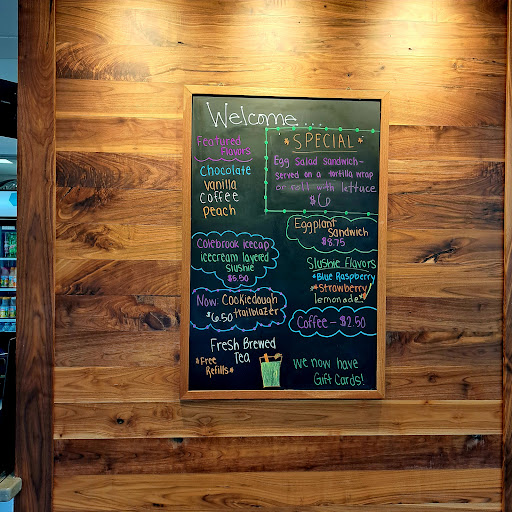 Welcome...
Featured
Flavors
Chocolate
Vanilla
Coffee
Peach
*SPECIAL*
Egg Salad Sandwich-
served on a tortilla wrap
or roll with lettuce
$6
Eggplant
Sandwich
$8.75
Colebrook icecap
icecream layered
Slushie
$6.50
Slushie Flavors
*Blue Raspberry
*Strawberry
lemonade*
Now: Cookiedough
$6.50 trailblazer
Coffee - $2.50
Fresh Brewed
Tea
*Free
Refills*
We now have
Gift Cards!